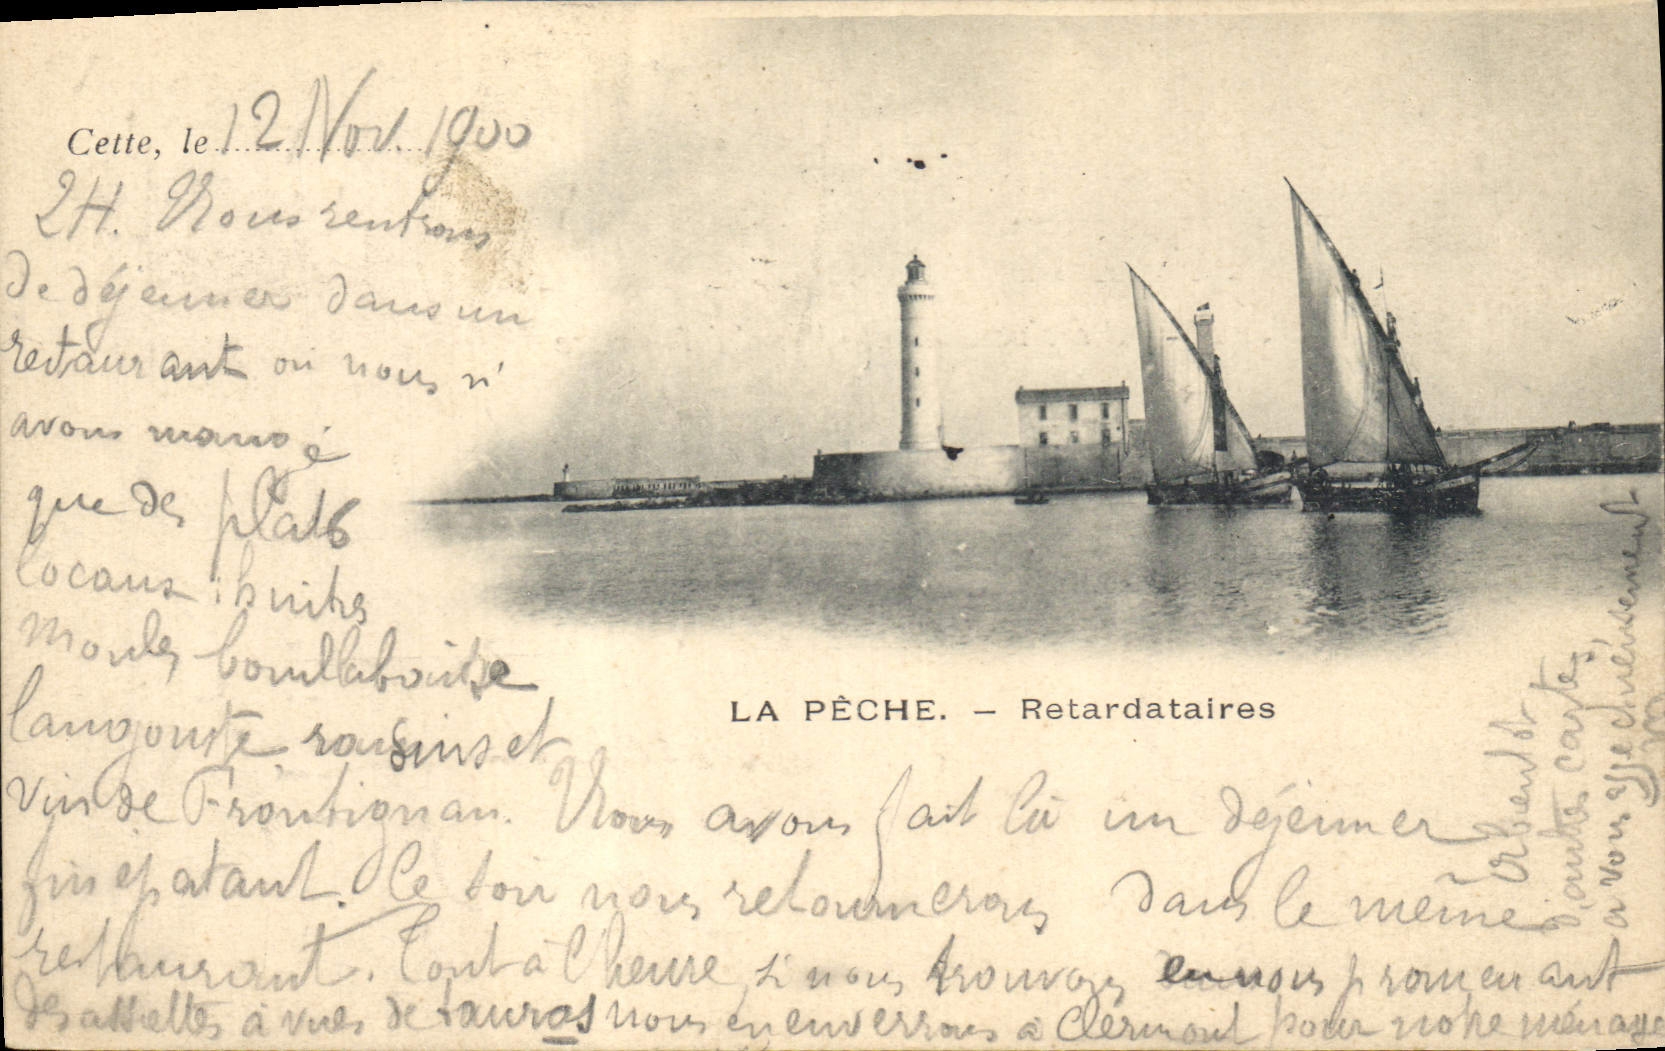 Cette, le 12 Nov. 1900
2H. Nous rentrons
de déjeuner dans un
restaurant où nous n'
avons mangé
que des plats
locaux : huitres
moules bouillabaisse
langouste raisins et
vin de Frontignan. Nous avons fait là un déjeuner
fin epatant. Ce soir nous retournerons dans le même
restaurant. Tout à l'heure si nous trouvons en nous promenant
des assiettes à vues de tauros nous en enverrons à Clermont pour notre ménage
LA PÊCHE. — Retardataires
bientot
d'autres cartes
a vous affectueusement